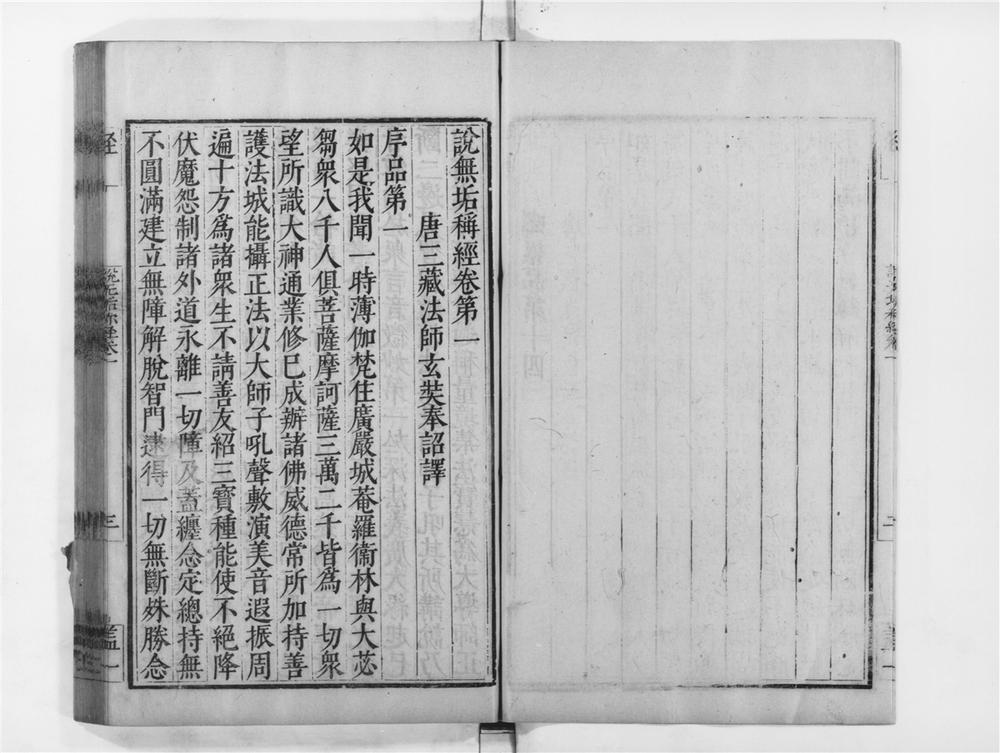 說無垢稱經卷第一
唐三藏法師玄奘奉詔譯
序品第一
如是我聞一時薄伽梵住廣嚴城菴羅衞林與大苾
芻衆八千人俱菩薩摩訶薩三萬二千皆爲一切衆
望所識大神通業修已成辦諸佛威德常所加持善
護法城能攝正法以大師子吼聲敷演美音遐振周
遍十方爲諸衆生不請善友紹三寶種能使不絕降
伏魔怨制諸外道永離一切障及蓋纏念定總持無
不圓滿建立無障解脫智門逮得一切無斷殊勝念